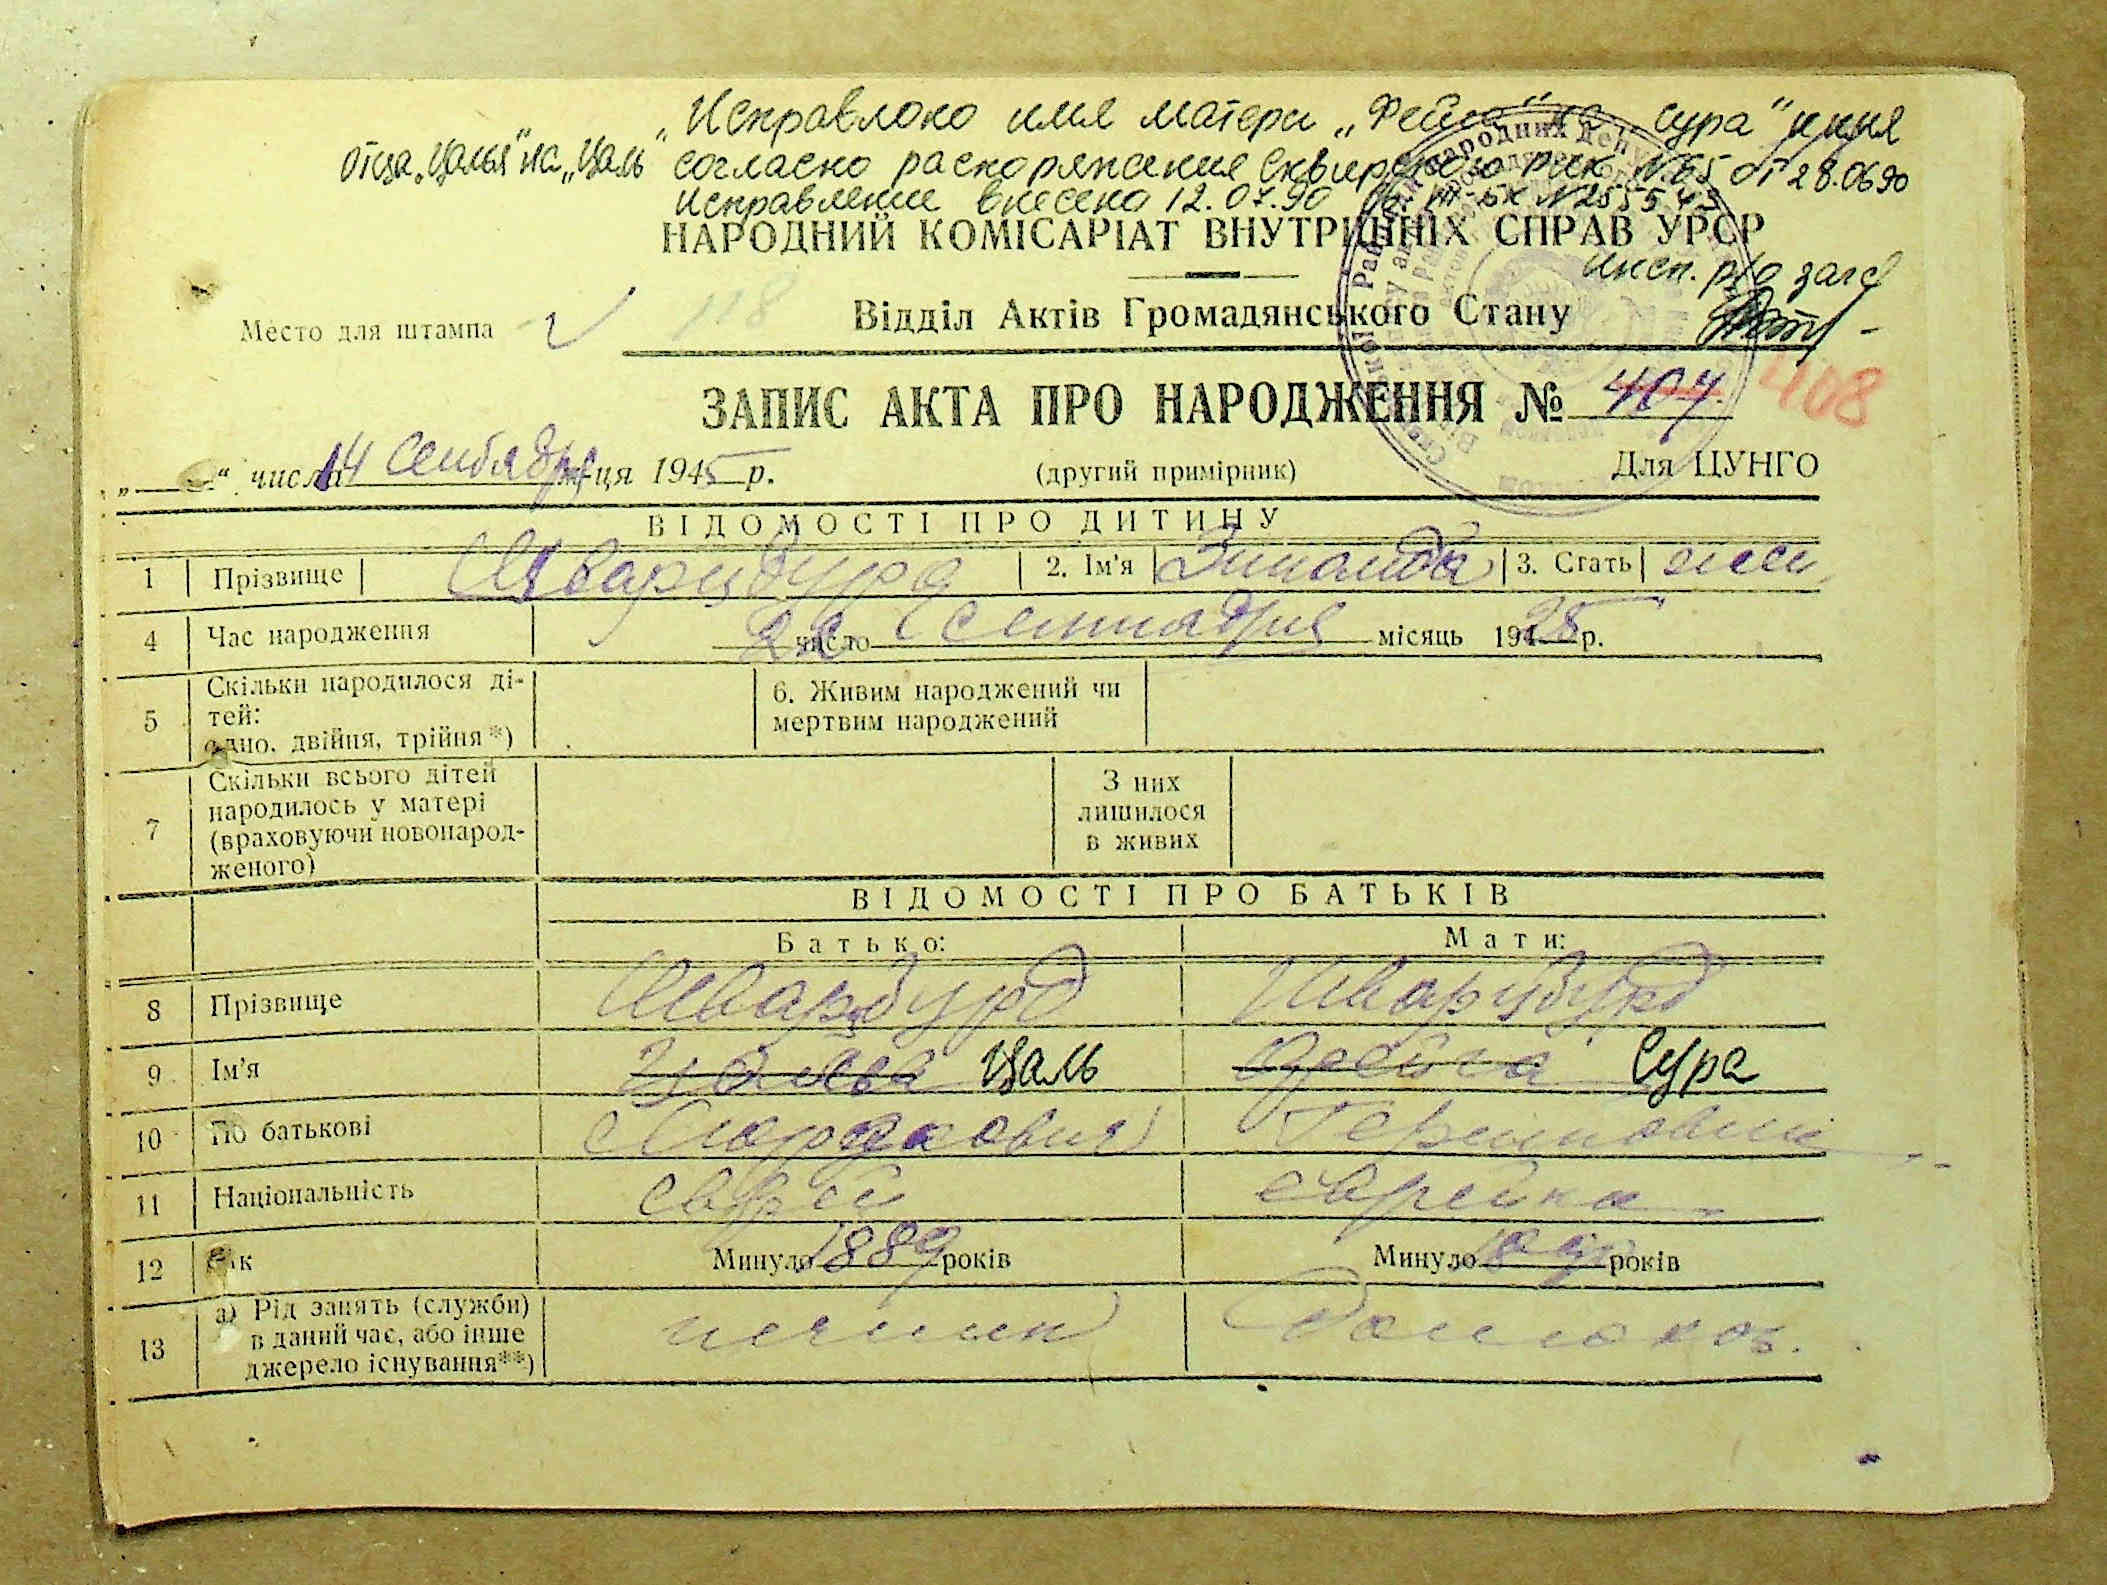 Исправлено имя матери „Фейга" на „Сура" и имя
отца „Цалья" на „Цаль" согласно распоряжения Сквирского рик №65 от 28.06.90
исправление внесено 12.07.90
НАРОДНИЙ КОМІСАРІАТ ВНУТРІШНІХ СПРАВ УРСР
инсп. р/о загс
Место для штампа 118 Відділ Актів Громадянського Стану
ЗАПИС АКТА ПРО НАРОДЖЕННЯ № 407 408
„ " числа 14 Сентября м-ця 1945 р. (другий примірник) Для ЦУНГО
ВІДОМОСТІ ПРО ДИТИНУ
1 Прізвище Шварцбурд 2. Ім'я Зинаида 3. Стать жен
4 Час народження 22 число Сентября місяць 1925 р.
5 Скільки народилося ді-
тей:
одно, двійня, трійня*)
6. Живим народжений чи
мертвим народжений
7 Скільки всього дітей
народилось у матері
(враховуючи новонарод-
женого)
З них
лишилося
в живих
ВІДОМОСТІ ПРО БАТЬКІВ
Батько: Мати:
8 Прізвище Шварцбурд Шварцбурд
9 Ім'я Цаль Фейга Сура
10 По батькові Мордкович Гершковна
11 Національність еврей еврейка
12 Вік Минуло 1889 років Минуло років
13 а) Рід занять (служби)
в даний час, або інше
джерело існування**)
печник Домохоз.